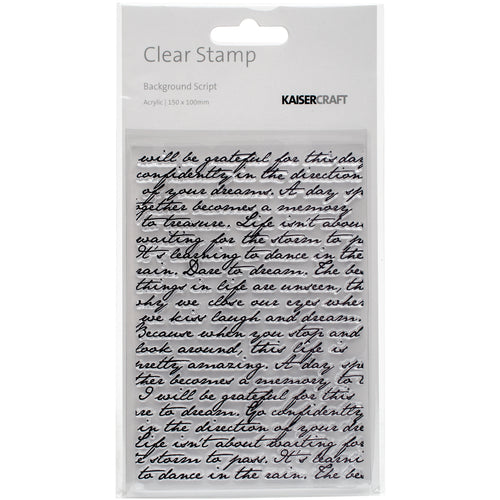 Clear Stamp
Background Script
Acrylic | 150 x 100mm
KAISERCRAFT
will be grateful for this day
confidently in the direction
of your dreams. A day spe
ogether becomes a memory
to treasure. Life isn't abou
waiting for the storm to p
It's learning to dance in the
rain. Dare to dream. The be
things in life are unseen, th
why we close our eyes when
we kiss laugh and dream.
Because when you stop and
look around, this life is
pretty amazing. A day sp
ther becomes a memory to t
I will be grateful for this
re to dream. Go confidently
in the direction of your dre
Life isn't about waiting for
storm to pass. It's learni
to dance in the rain. The be